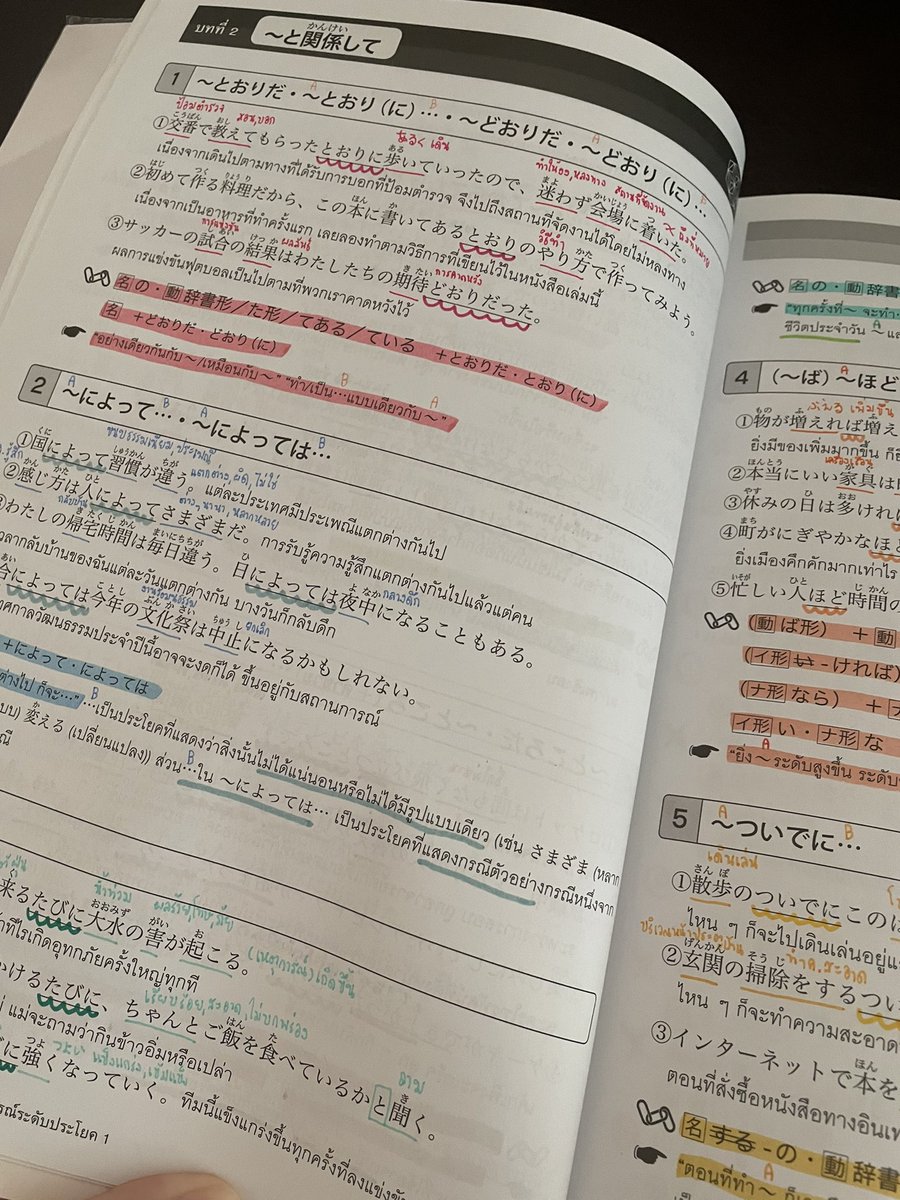 บทที่ 2 ～と関係して
かんけい
1 ～とおりだ・～とおり（に）…・～どおりだ・～どおり（に）…
①交番で教えてもらったとおりに歩いていったので、迷わず会場に着いた。
เนื่องจากเดินไปตามทางที่ได้รับการบอกที่ป้อมตำรวจ จึงไปถึงสถานที่จัดงานได้โดยไม่หลงทาง
②初めて作る料理だから、この本に書いてあるとおりのやり方で作ってみよう。
เนื่องจากเป็นอาหารที่ทำครั้งแรก เลยลองทำตามวิธีการที่เขียนไว้ในหนังสือเล่มนี้
③サッカーの試合の結果はわたしたちの期待どおりだった。
ผลการแข่งขันฟุตบอลเป็นไปตามที่พวกเราคาดหวังไว้
名の・動辞書形／た形／てある／ている ＋とおりだ・とおり（に）
名 ＋どおりだ・どおり（に）
"อย่างเดียวกันกับ～/เหมือนกับ～" "ทำ/เป็น…แบบเดียวกับ～"
2 ～によって…・～によっては…
①国によって習慣が違う。 แต่ละประเทศมีประเพณีแตกต่างกันไป
②感じ方は人によってさまざまだ。 การรับรู้ความรู้สึกแตกต่างกันไปแล้วแต่คน
わたしの帰宅時間は毎日違う。日によっては夜中になることもある。
เวลากลับบ้านของฉันแต่ละวันแตกต่างกัน บางวันก็กลับดึก
合によっては今年の文化祭は中止になるかもしれない。
ศกาลวัฒนธรรมประจำปีนี้อาจจะงดก็ได้ ขึ้นอยู่กับสถานการณ์
＋によって・によっては
ต่างไป ก็จะ…" …เป็นประโยคที่แสดงว่าสิ่งนั้นไม่ได้แน่นอนหรือไม่ได้มีรูปแบบเดียว (เช่น さまざま (หลาก
แบบ) 変える (เปลี่ยนแปลง)) ส่วน…ใน ～によっては… เป็นประโยคที่แสดงกรณีตัวอย่างกรณีหนึ่งจาก
ณี
来るたびに大水の害が起こる。
าที่ไรเกิดอุทกภัยครั้งใหญ่ทุกที
かけるたびに、ちゃんとご飯を食べているかと聞く。
แม่จะถามว่ากินข้าวอิ่มหรือเปล่า
びに強くなっていく。 ทีมนี้แข็งแกร่งขึ้นทุกครั้งที่ลงแข่งขัน
รณ์ระดับประโยค 1
名の・動辞書
"ทุกครั้งที่～ จะทำ
ชีวิตประจำวัน ～ แล
4 （～ば）～ほど
①物が増えれば増え
ยิ่งมีของเพิ่มมากขึ้น ก็ยิ
②本当にいい家具は
③休みの日は多けれ
④町がにぎやかなほ
ยิ่งเมืองคึกคักมากเท่าไร
⑤忙しい人ほど時間の
（動ば形） ＋動
（イ形い -ければ）
（ナ形なら） ＋ナ
イ形い・ナ形な
"ยิ่ง～ระดับสูงขึ้น ระดับ
5 ～ついでに…
①散歩のついでにこの
ไหน ๆ ก็จะไปเดินเล่นอยู่แ
②玄関の掃除をするつい
ไหน ๆ ก็จะทำความสะอาด
③インターネットで本を
ตอนที่สั่งซื้อหนังสือทางอินเท
名する -の・動辞書
"ตอนที่ทำ～ ก็